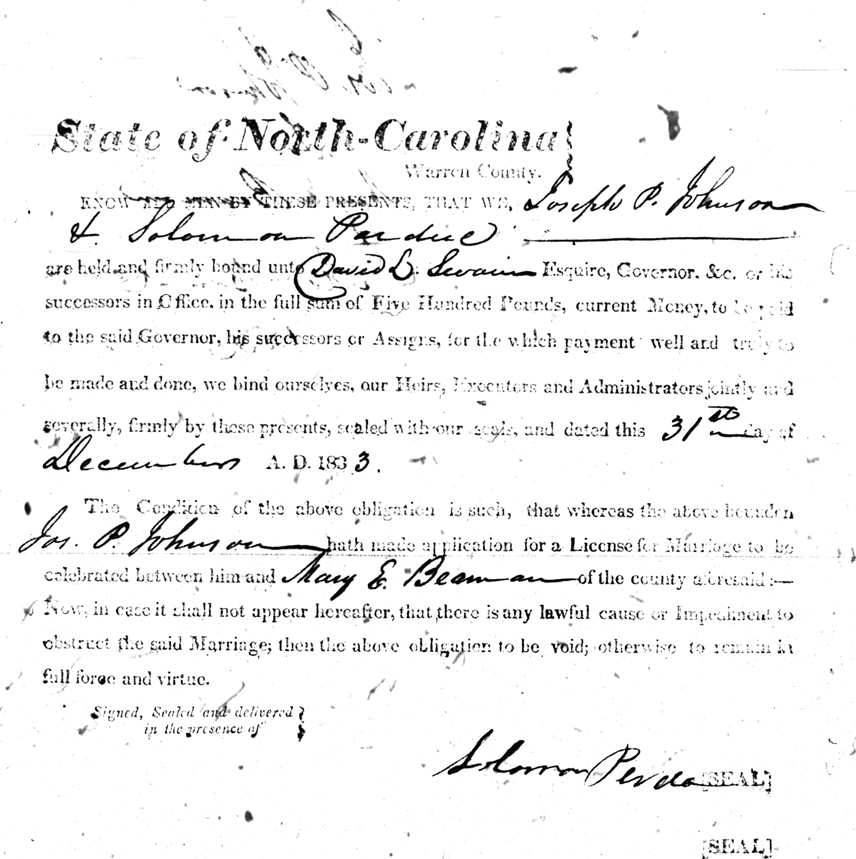 State of North-Carolina
Warren County.
KNOW ALL MEN BY THESE PRESENTS, THAT WE, Joseph P. Johnson
& Solomon Pardue
are held and firmly bound unto David L. Swain Esquire, Governor, &c. or his
successors in Office, in the full sum of Five Hundred Pounds, current Money, to be paid
to the said Governor, his successors or Assigns, for the which payment well and truly to
be made and done, we bind ourselves, our Heirs, Executors and Administrators jointly and
severally, firmly by these presents, sealed with our seals, and dated this 31st day of
December A. D. 1833.
The Condition of the above obligation is such, that whereas the above bounden
Jos. P. Johnson hath made application for a License for Marriage to be
celebrated between him and Mary E. Beaman of the county aforesaid:—
Now, in case it shall not appear hereafter, that there is any lawful cause or Impediment to
obstruct the said Marriage; then the above obligation to be void; otherwise to remain in
full force and virtue.
Signed, Sealed and delivered
in the presence of
Solomon Perdu [SEAL]
[SEAL]